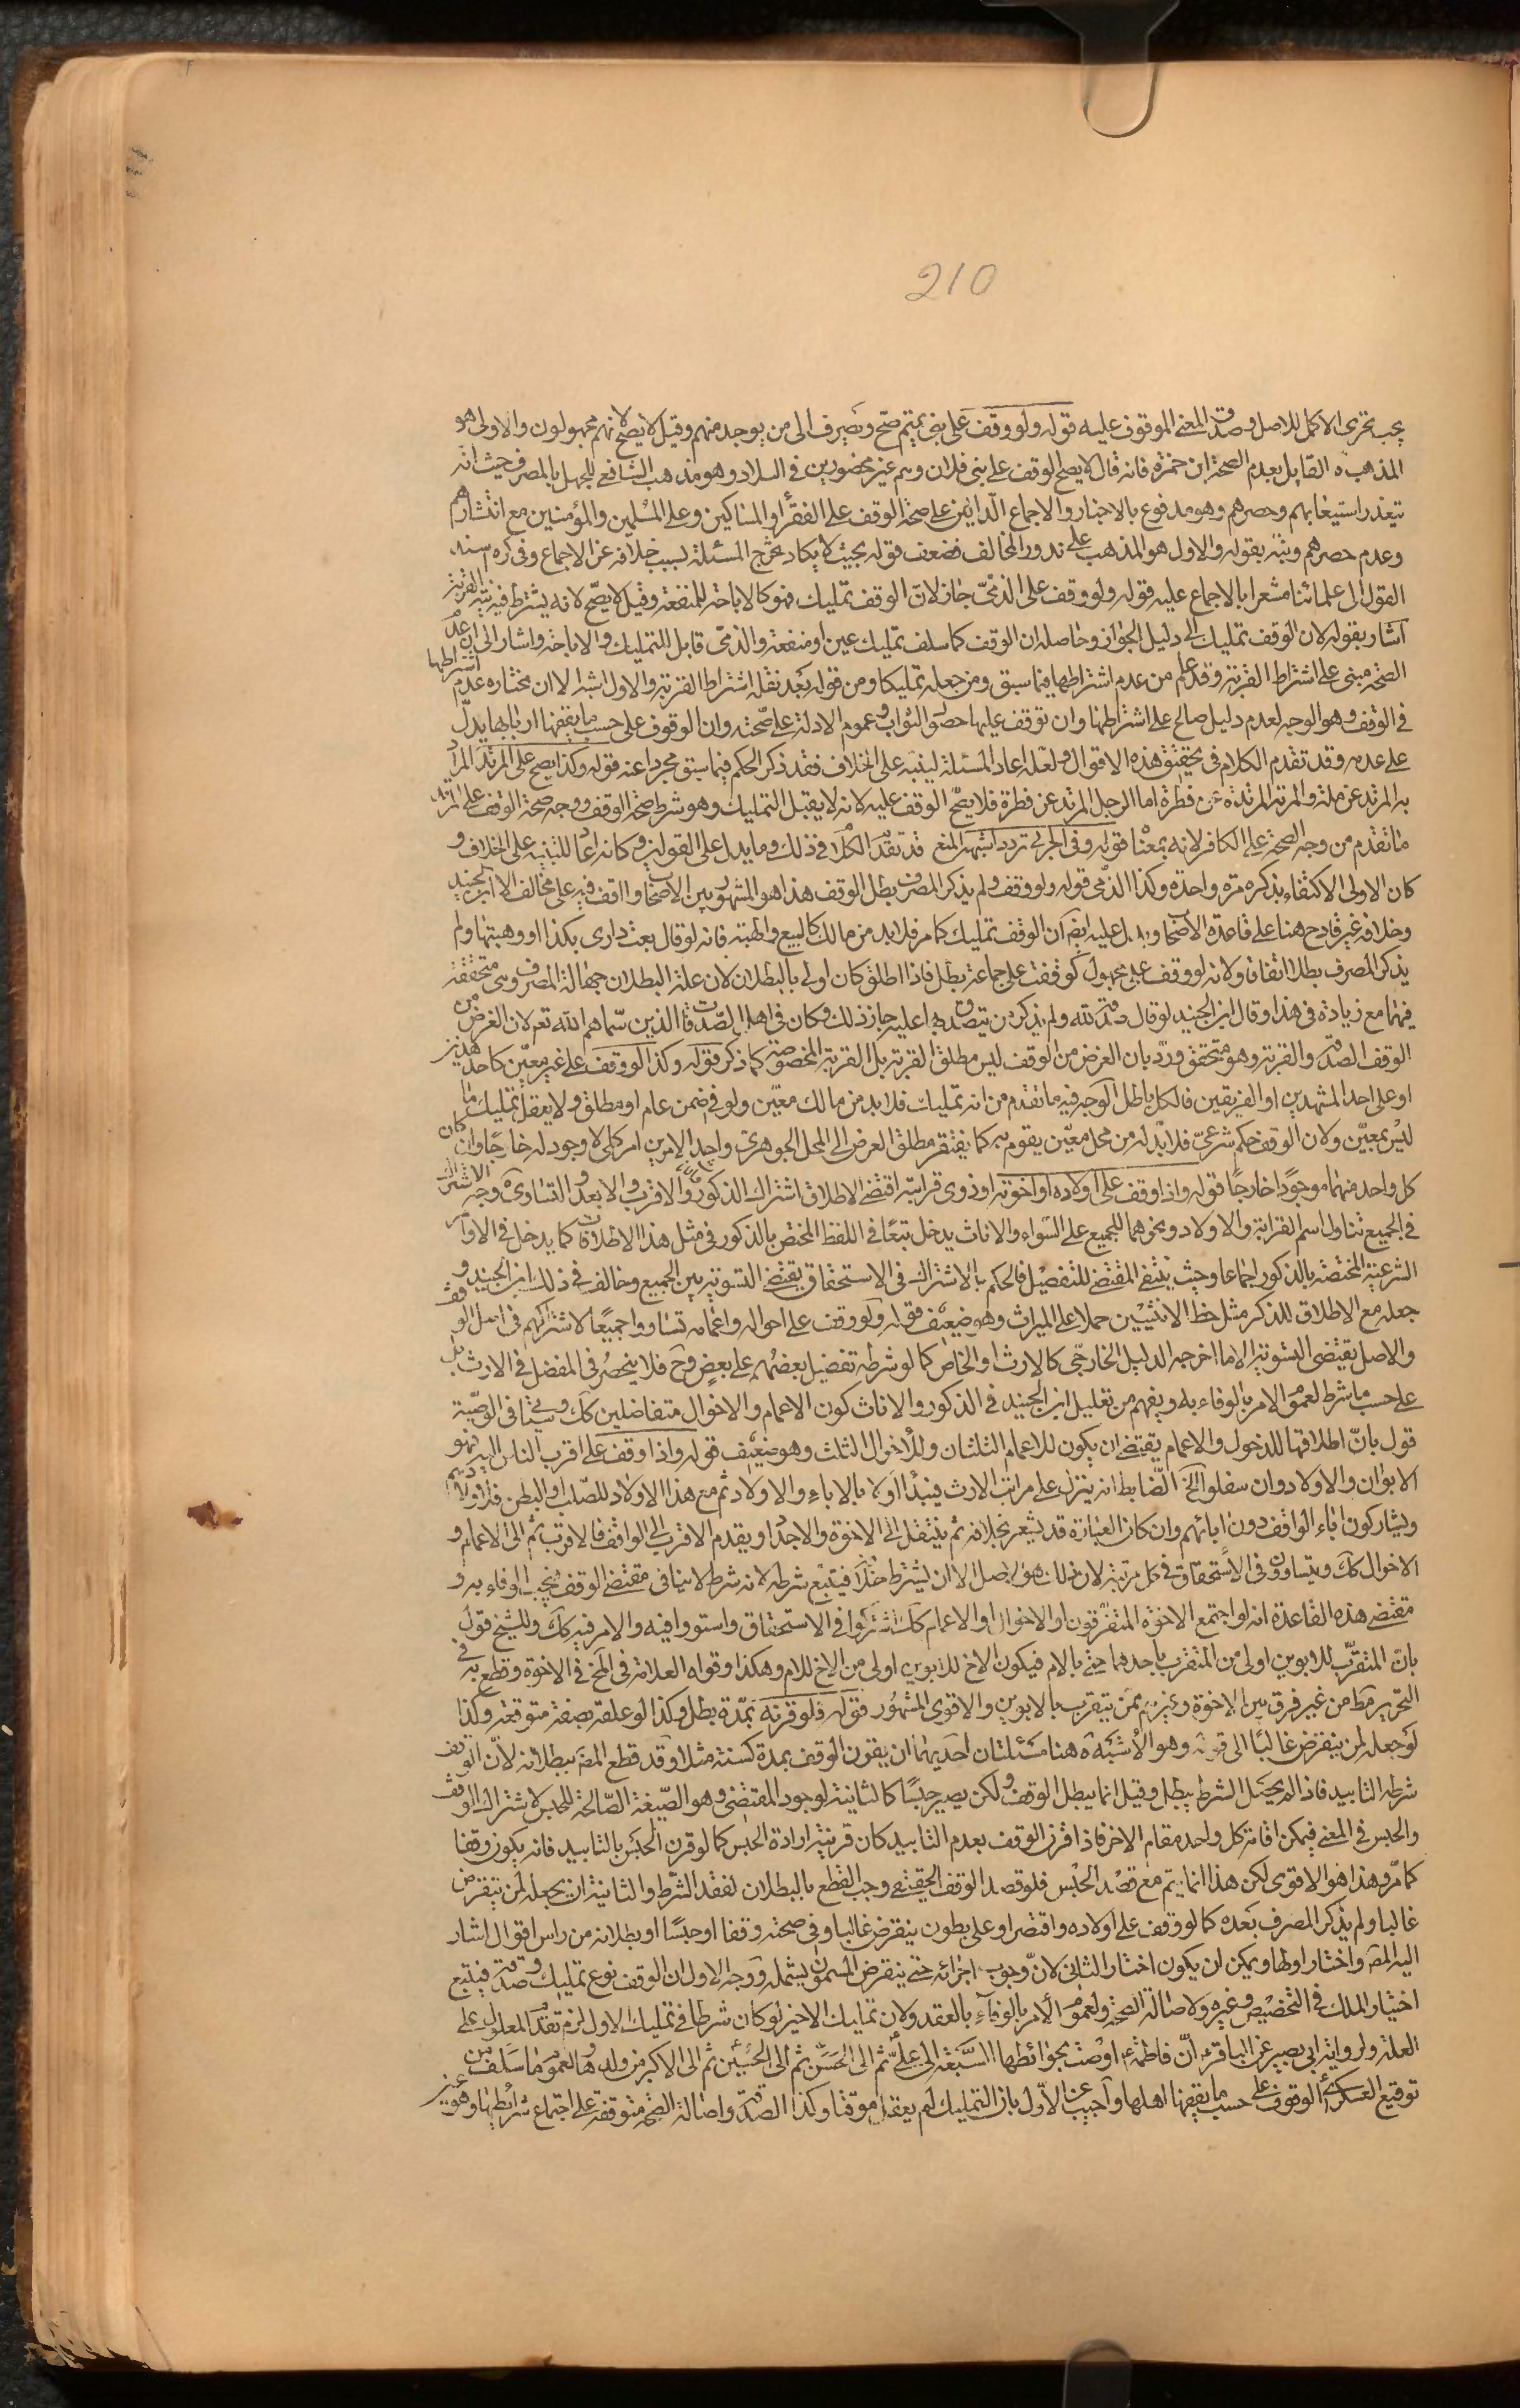 210
يجب تحرى الاكمل للاصل وصدق المعنى الموقوف عليه قوله ولو وقف على بنى تميم صح ويصرف الى من يوجد منهم وقيل لا يصح لانهم مجهولون والاولى هو
المذهب ه القايل بعدم الصحة ابن حمزة فانه قال لا يصح الوقف على بنى فلان وهم غير محصورين فى البلاد وهو مذهب الشافعى للجهل بالمصرف حيث انه
يتعذر استيعابهم وحصرهم وهو مدفوع بالاخبار والاجماع الدالين على صحة الوقف على الفقرا والمساكين وعلى المسلمين والمؤمنين مع انتشارهم
وعدم حصرهم ونبه بقوله والاول هو المذهب على ندور المخالف فضعف قوله بحيث لا يكاد يخرج المسئلة بسبب خلافه عن الاجماع وفى كره سند
القول الى علمائنا مشعرا بالاجماع عليه قوله ولو وقف على الذمى جاز لان الوقف تمليك فهو كالاباحة للمنفعة وقيل لا يصح لانه يشترط فيه نية القربة
اشار بقوله لان الوقف تمليك الى دليل الجواز وحاصله ان الوقف كما سلف تمليك عين او منفعة والذمى قابل للتمليك والاباحة واشار الى ان عدم
الصحة مبنى على اشتراط القربة وقد علم من عدم اشتراطها فيما سبق ومن جعله تمليكا ومن قوله بعد نقله اشتراط القربة والاول اشبه الا ان مختاره عدم اشتراطها
فى الوقف وهو الوجه لعدم دليل صالح على اشتراطها وان توقف عليها حصول الثواب وعموم الادلة على صحته وان الوقوف على حسب ما يقفها اربابها يدل
على عدمه وقد تقدم الكلام فى تحقيق هذه الاقوال ولعله اعاد المسئلة لينبه على الخلاف فقد ذكر الحكم فيما سبق مجردا عنه قوله وكذا يصح على المرتد المراد
به المرتد عن ملة والمرتد المرتدة عن فطرة اما الرجل المرتد عن فطرة فلا يصح الوقف عليه لانه لا يقبل التمليك وهو شرط صحة الوقف ووجه صحة الوقف على
ما تقدم من وجه الصحة على الكافر لانه بمعناه قوله وفى الحربى تردد اشبهه المنع قد تقدم الكلام فى ذلك وما يدل على القولين وكانه اعاد للتنبيه على الخلاف و
كان الاولى الاكتفاء بذكره مرة واحدة وكذا الذمى قوله ولو وقف ولم يذكر المصرف بطل الوقف هذا هو المشهور بين الاصحاب ولم اقف فيه على مخالف الا ابن الجنيد
وخلافه غير قادح هنا على قاعدة الاصحاب ويدل عليه ايضا ان الوقف تمليك كما مر فلا بد من مالك كالبيع والهبة فانه لو قال بعت دارى بكذا او وهبتها ولم
يذكر المصرف بطل اتفاقا ولانه لو وقف على مجهول كوقفت على جماعة بطل فاذا اطلق كان اولى بالبطلان لان علة البطلان جهالة المصرف وهى متحققة
فيهما مع زيادة فى هذا وقال ابن الجنيد لو قال صدقة لله ولم يذكر من يتصدق بها عليه جاز ذلك وكان فى اهل الصدقات الذين سماهم الله تعم لان الغرض من
الوقف الصدقة والقربة وهو متحقق ورد بان الغرض من الوقف ليس مطلق القربة بل القربة المخصوصة كما ذكر قوله وكذا لو وقف على غير معين كاحد هذين
او على احد المشهدين او الفريقين فالكل باطل الوجه فيه ما تقدم من انه تمليك فلا بد من مالك معين ولو فى ضمن عام او مطلق ولا يعقل تمليك ما
ليس بمعين ولان الوقف حكم شرعى فلا بد له من محل معين يقوم به كما يفتقر مطلق العرض الى المحل الجوهرى واحد الامرين امر كلى لا وجود له خارجا وان كان
كل واحد منهما موجودا خارجا قوله واذا وقف على اولاده او اخوته او ذوى قرابته اقتضى الاطلاق اشتراك الذكور والاقرب والابعد والتساوى ه وجه الاشتراك
فى الجميع تناول اسم القرابة والاولاد ونحوهما للجميع على السواء والاناث يدخل تبعا فى اللفظ المختص بالذكور فى مثل هذا الاطلاقات كما يدخل فى الاوامر
الشرعية المختصة بالذكور اجماعا وحيث ينتفى المقتضى للتفضيل فالحكم بالاشتراك فى الاستحقاق يقتضى التسوية بين الجميع وخالف فى ذلك ابن الجنيد و
جعله مع الاطلاق للذكر مثل حظ الانثيين حملا على الميراث وهو ضعيف قوله ولو وقف على اخواله واعمامه تساووا جميعا لاشتراكهم فى اصل الوقف
والاصل يقتضى التسوية الا ما اخرجه الدليل الخارجى كالارث او الخاص كما لو شرط تفضيل بعضهم على بعض وح فلا ينحصر فى المفضل فى الارث بل
على حسب ما شرط لعموم الامر بالوفاء به ويفهم من تعليل ابن الجنيد فى الذكور والاناث كون الاعمام والاخوال متفاضلين كك وسيأتى فى الوصية
قول بان اطلاقها للخول والاعمام يقتضى ان يكون للاعمام الثلثان وللاخوال الثلث وهو ضعيف قوله واذا وقف على اقرب الناس اليه فهو
الابوان والاولاد وان سفلوا الخ الضابط انه ينزل على مراتب الارث فيبدا اولا بالاباء والاولاد ثم مع هذا الاولاد للصلب او البطن فاولادهم
ويشاركون اباء الواقف دون ابائهم وان كان العبارة قد يشعر بخلافه ثم ينتقل الى الاخوة والاجداد ويقدم الاقرب الى الواقف فالاقرب ثم الى الاعمام و
الاخوال كك ويتساوون فى الاستحقاق فى كل مرتبة لان ذلك هو الاصل الا ان يشترط خلافه فيتبع شرطه لانه شرط لا ينافى مقتضى الوقف فيجب الوفاء به و
مقتضى هذه القاعدة انه لو اجتمع الاخوة المتفرقون والاخوال او الاعمام كك اشتركوا فى الاستحقاق واستووا فيه والامر فيه كك وللشيخ قول
بان المتقرب للابوين اولى من المتقرب باحدهما حتى بالام فيكون الاخ للابوين اولى من الاخ للام وهكذا وقواه العلامة فى المخ فى الاخوة وقطع به فى
التحرير مط من غير فرق بين الاخوة وغيرهم ممن يتقرب بالابوين والاقوى المشهور قوله فلو قرنه بمدة بطل وكذا لو علقه بصفة متوقعة وكذا
لو جعله لمن ينقرض غالبا الى قوله وهو الاشبه ه هنا مسئلتان احديهما ان يقرن الوقف بمدة كسنة مثلا وقد قطع المص ببطلانه لان الوقف
شرطه التابيد فاذا لم يحصل الشرط يبطل وقيل انما يبطل الوقف ولكن يصير حبسا كالثانية لوجود المقتضى وهو الصيغة الصالحة للحبس لاشتراك الوقف
والحبس فى المعنى فيمكن اقامة كل واحد مقام الاخر فاذا اقرن الوقف بعدم التابيد كان قرينة ارادة الحبس كما لو قرن الحبس بالتابيد فانه يكون وقفا
كما مر وهذا هو الاقوى لكن هذا انما يتم مع قصد الحبس فلو قصد الوقف الحقيقى وجب القطع بالبطلان لفقد الشرط والثانية ان يجعله لمن ينقرض
غالبا ولم يذكر المصرف بعده كما لو وقف على اولاده واقتصر او على بطون ينقرض غالبا وفى صحته وقفا او حبسا او بطلانه من راس اقوال اشار
اليه المص واختار اولها ويمكن ان يكون اختار الثانى لان وجوب اجرائه حتى ينقرض المسمون يشمله ووجه الاول ان الوقف نوع تمليك وصدقة فيتبع
اختيار المالك فى التخصيص وغيره ولاصالة الصحة ولعموم الامر بالوفاء بالعقد ولان تمليك الاخير لو كان شرطا فى تمليك الاول لزم تقدم المعلول على
العلة ولرواية ابى بصير عن الباقر ع ان فاطمة ع اوصت بحوائطها السبعة الى على ع ثم الى الحسن ثم الى الحسين ثم الى الاكبر من ولدها ولعموم ما سلف من
توقيع العسكرى ع الوقوف على حسب ما يقفها اهلها واجيب عن الاول بان التمليك لم يعقل موقتا وكذا الصدقة واصالة الصحة متوقفة على اجتماع شرائطها وهو عين